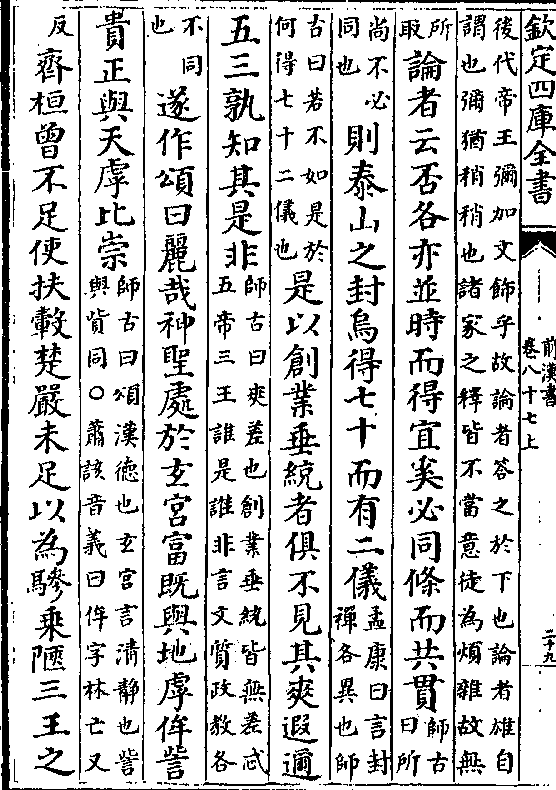 欽定四庫全書
前漢書
卷八十七上
二十九
後代帝王彌加文飾乎故論者答之於下也論者雄自
謂也彌猶稍稍也諸家之釋皆不當意徒為煩雜故無
所取
論者云否各亦並時而得宜奚必同條而共貫
師古曰所
尚不必同也
則泰山之封烏得七十而有二儀
孟康曰言封禪各異也師
古曰若不如是於何得七十二儀也
是以創業垂統者俱不見其爽遐邇
五三孰知其是非
師古曰爽差也創業垂統皆無差忒
五帝三王誰是誰非言文質政教各
不同也
遂作頌曰麗哉神聖處於玄宮富既與地虖侔訾
貴正與天虖比崇
師古曰頌漢德也玄宮言清静也訾
與貲同○蕭該音義曰侔字林亡又
反
齊桓曾不足使扶轂楚嚴未足以為驂乗陿三王之